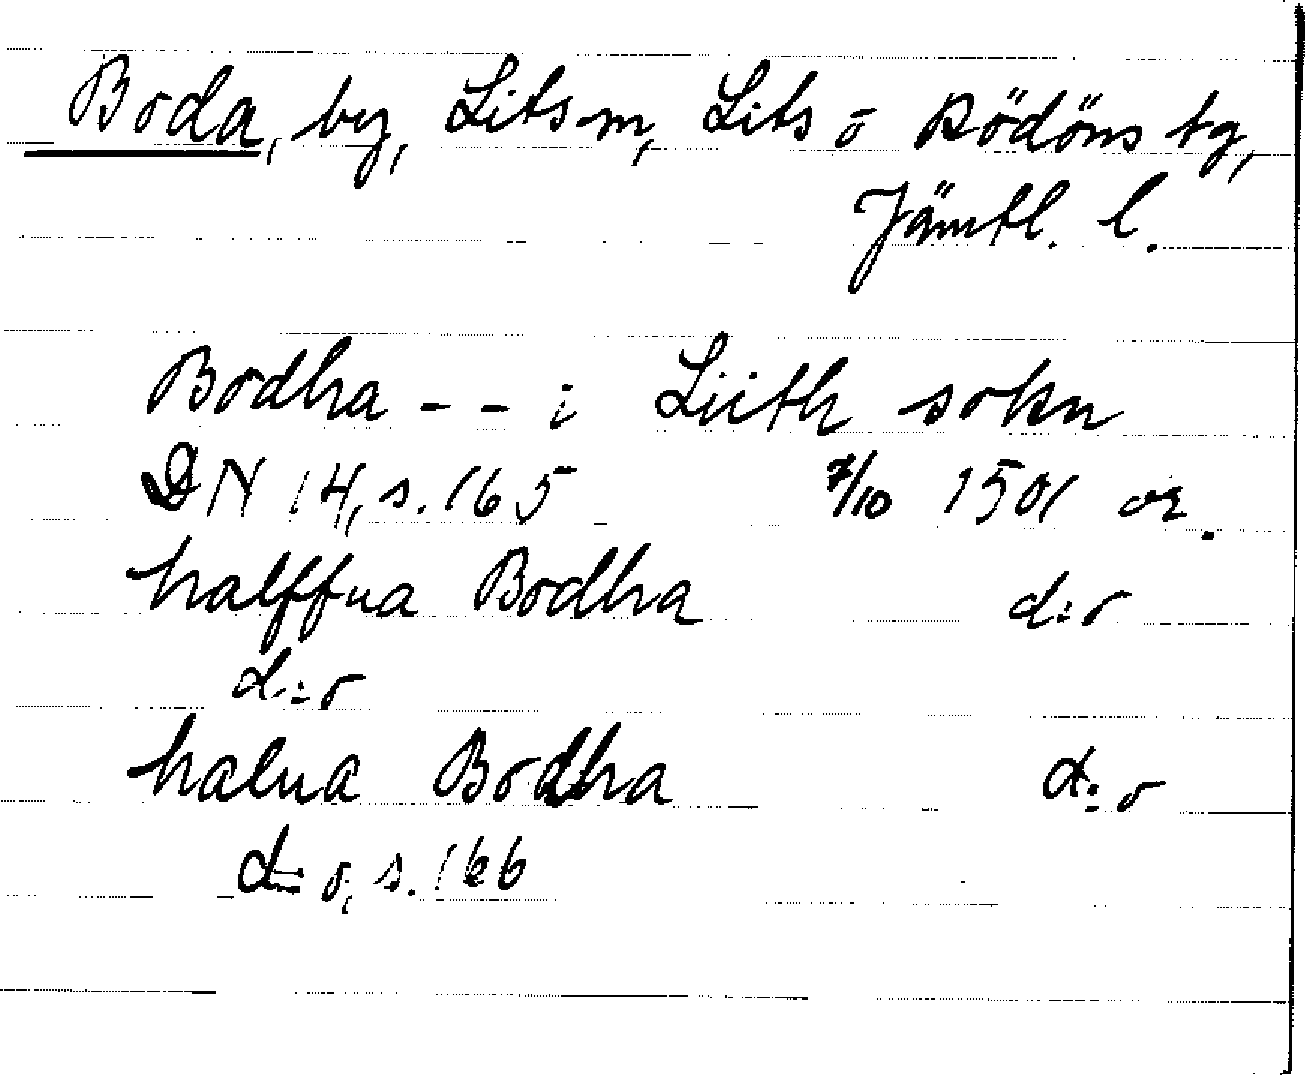 Boda, by, Lits sn, Lits o Rödöns tg,
Jämtl. l.
Bodha - - i Liith sokn
DN 14, s. 165 7/10 1501 or.
halffua Bodha d:o
d:o
halua Bodha d:o
d:o, s. 166